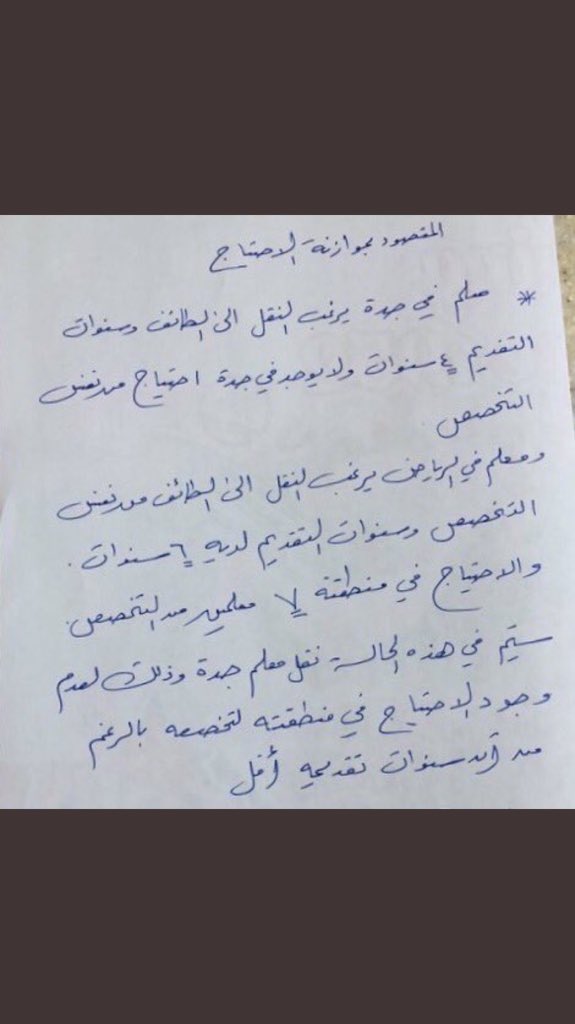 المقصود بموازنة الاحتياج
* معلم في جدة يرغب النقل الى الطائف وسنوات
التقديم ٤ سنوات ولا يوجد في جدة احتياج من نفس
التخصص
ومعلم في الرياض يرغب النقل الى الطائف من نفس
التخصص وسنوات التقديم لديه ٦ سنوات .
والاحتياج في منطقته ٧ معلمين من التخصص .
سيتم في هذه الحالة نقل معلم جدة وذلك لعدم
وجود الاحتياج في منطقته لتخصصه بالرغم
من أن سنوات تقديمه أقل